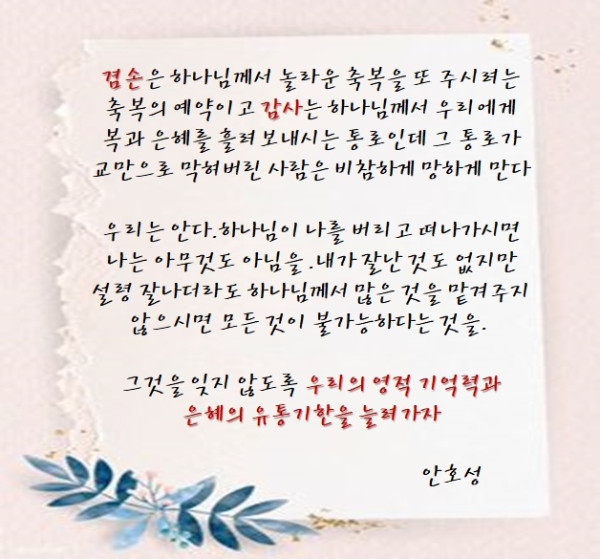 겸손은 하나님께서 놀라운 축복을 또 주시려는
축복의 예약이고 감사는 하나님께서 우리에게
복과 은혜를 흘려 보내시는 통로인데 그 통로가
교만으로 막혀버린 사람은 비참하게 망하게 만다
우리는 안다.하나님이 나를 버리고 떠나가시면
나는 아무것도 아님을.내가 잘난 것도 없지만
설령 잘나더라도 하나님께서 많은 것을 맡겨주지
않으시면 모든 것이 불가능하다는 것을.
그것을 잊지 않도록 우리의 영적 기억력과
은혜의 유통기한을 늘려가자
안호성